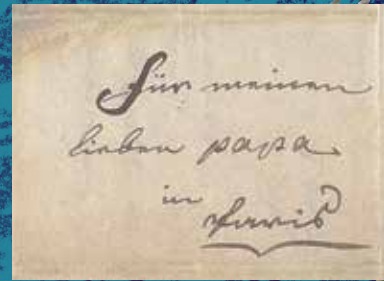 Für meinen
lieben papa
in
Paris